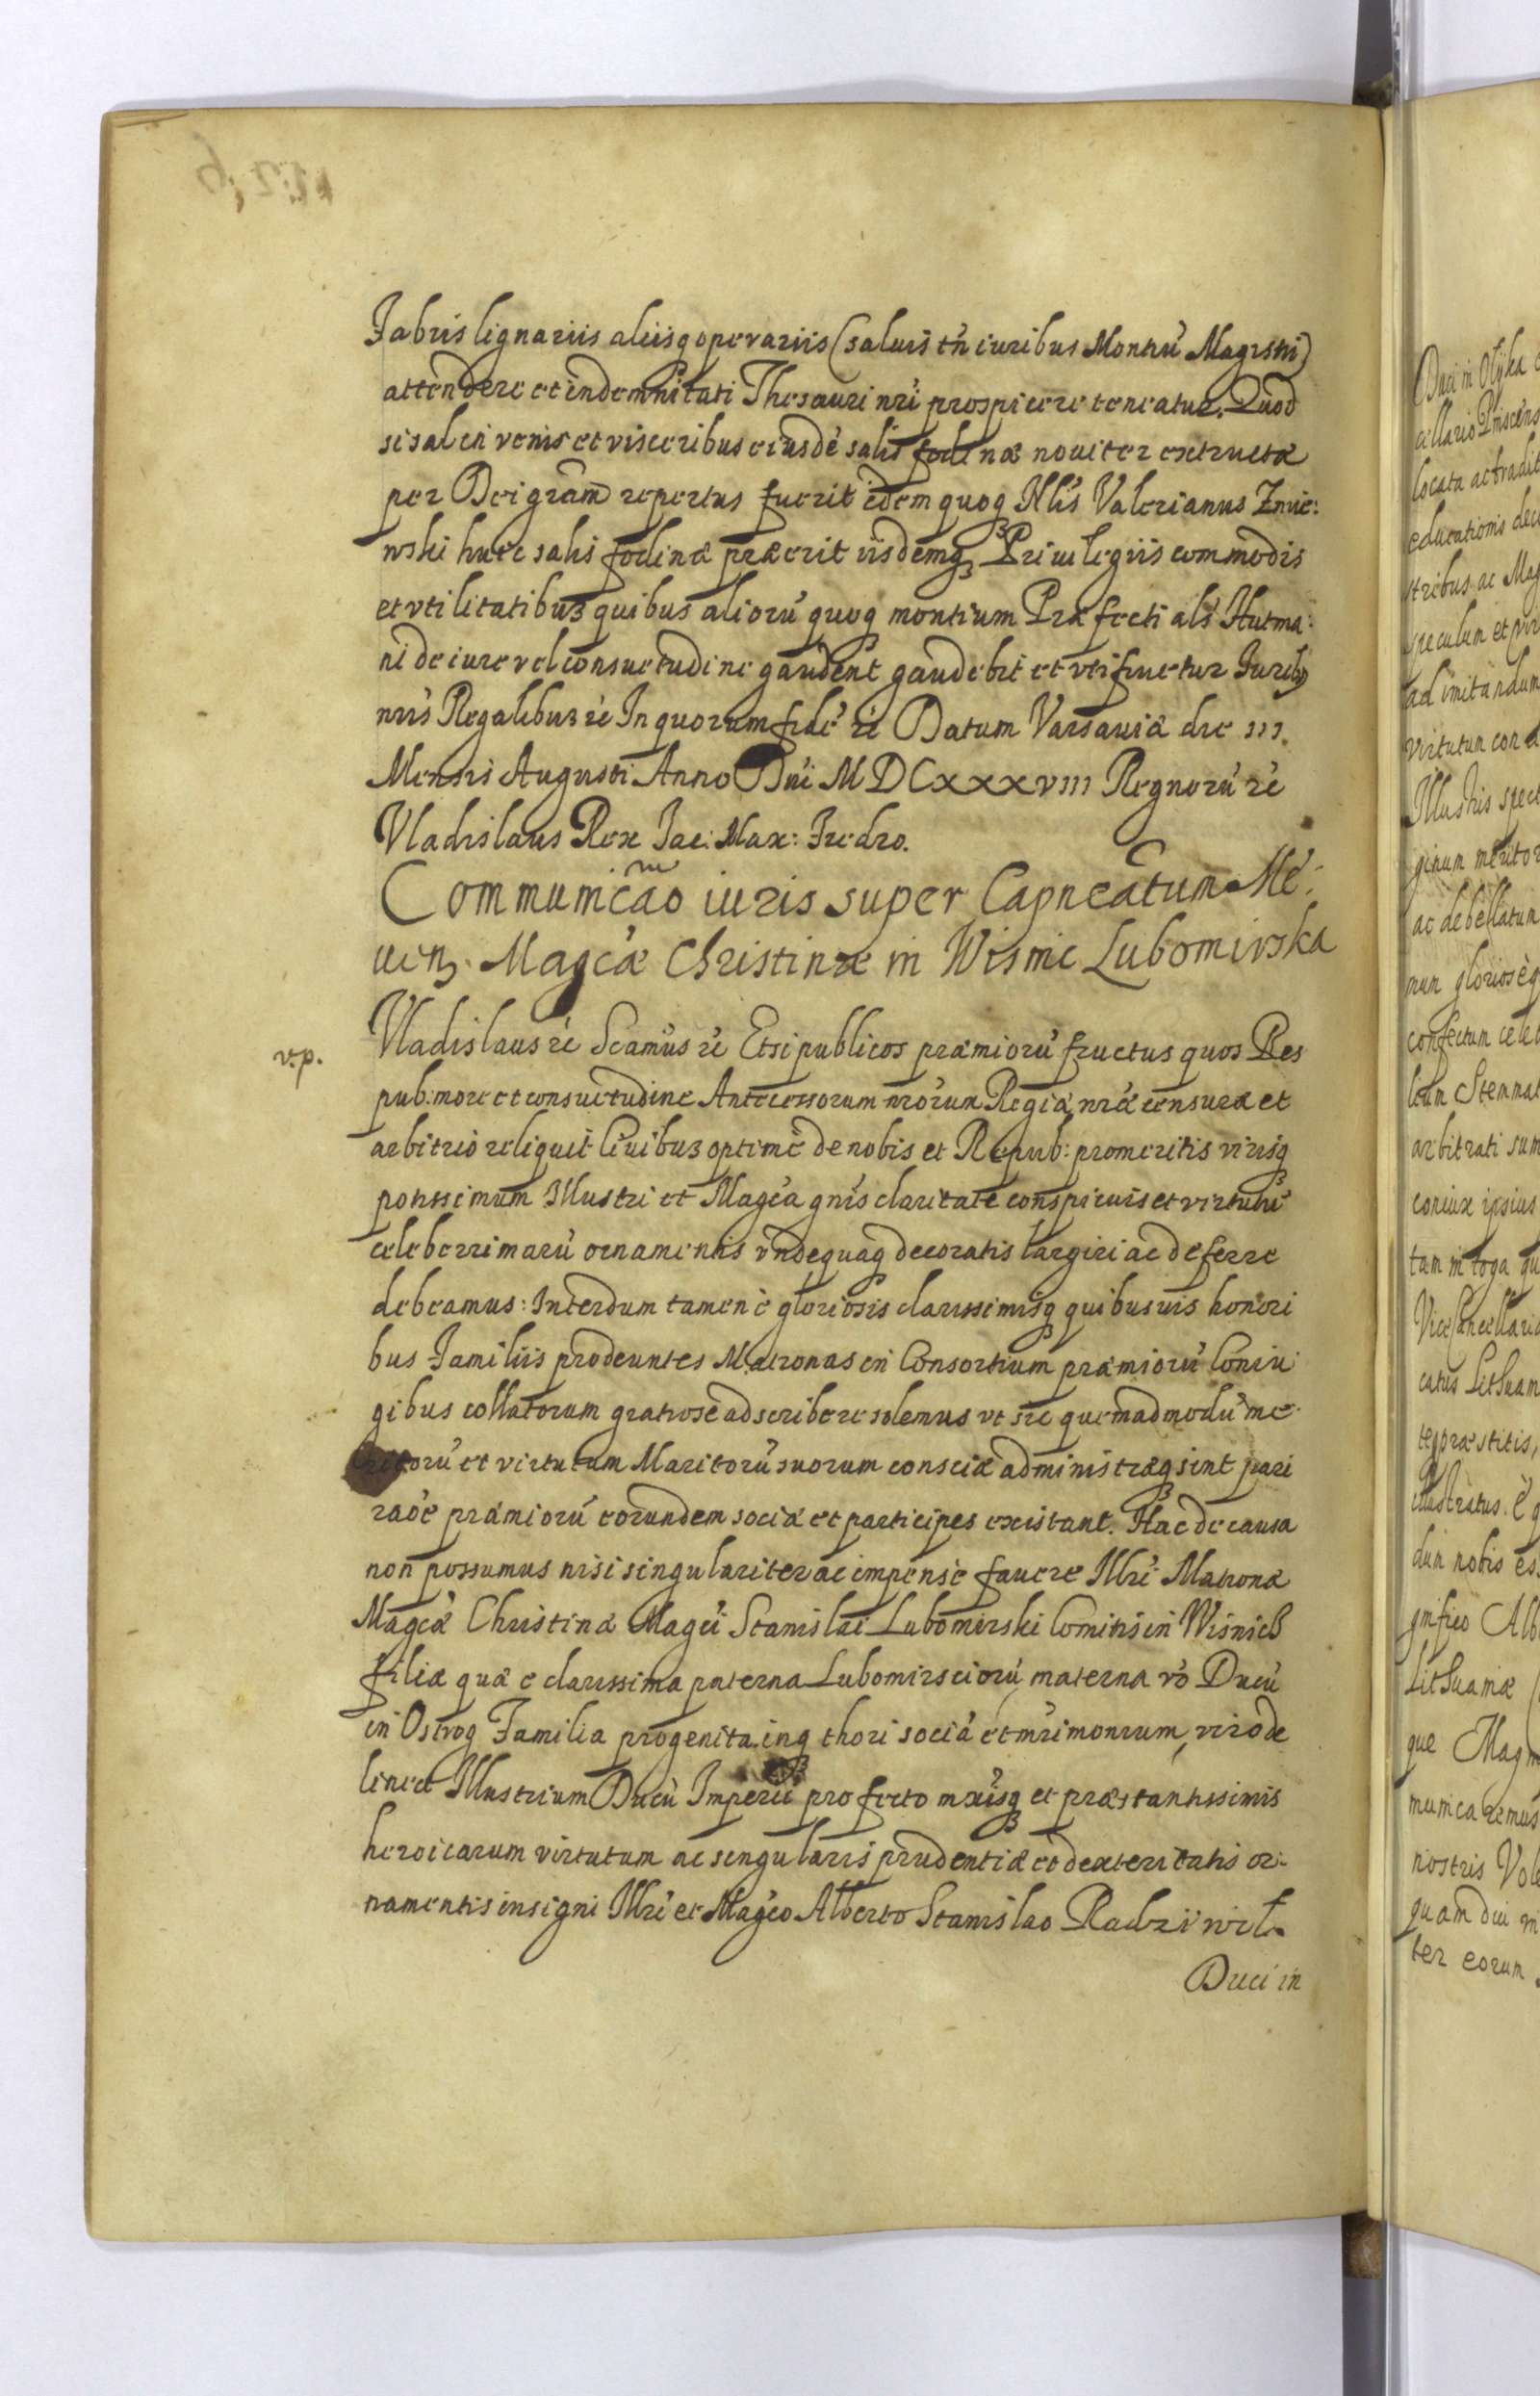 Fabris lignariis aliisq operariis (saluis tn̄ iuribus Montiū Magistri)
attendere et indemnitati Thesauri nri prospicere teneatur. Quod
si sal in venis et visceribus eiusdē salis fodinæ nouiter extructæ
per Dei grām repertus fuerit idem quoq Nlis Valerianus Znie:
wski huic salis fodinæ præerit iisdemq Priuilegiis commodis
et vtilitatibus quibus aliorū quoq montium Præfecti als Hutma:
ni de iure vel consuetudine gaudent gaudebit et vti fruetur Iurib9
nris Regalibus rē In quorum fidē rē Datum Varsauiæ die III.
Mensis Augusti Anno Dni MDCXXXVIII Regnorū rē
Vladislaus Rex Jac: Max: Fredro.
Communicāo iuris super Capneatum Me:
uen. Magcæ Christinæ in Wisnic Lubomirska
v.p. Vladislaus rē Scamus rē Etsi publicos præmiorū fructus quos Res
pub: more et consuetudine Antecessorum nrorum Regiæ nræ censuræ et
arbitrio reliquit Ciuibus optimē de nobis et Repub: promeritis virisq
potissimum Illustri et Magca gnis claritate conspicuis et virtutū
celeberrimarū ornamentis vndequaq decoratis largiri ac deferre
debeamus: Interdum tamen ē gloriosis clarissimisq quibusuis honori
bus Familiis prodeuntes Matronas in Consortium præmiorū Coniu:
gibus collatorum gratiose adscribere solemus vt sic quemadmodū me:
ritorū et virtutum Maritorū suorum consciæ administræq sint pari
raōe præmiorū eorundem sociæ et participes existant. Hac de causa
non possumus nisi singulariter ac impensē fauere Illri Matronæ
Magcæ Christinæ Magci Stanislai Lubomirski Comitis in Wisnicz
filiæ quæ e clarissima paterna Lubomirsciorū materna vō Ducū
in Ostrog Familia progenita inq thori sociā et mrimonium, viro de
linea Illustrium Ducū Imperii profecto mxisq et præstantissimis
heroicarum virtutum ac singularis prudentiæ et dexteritatis or:
namentis insigni Illri et Magco Alberto Stanislao Radziwil.
Duci in
Duci in Olyka
cellario Pinscens
locata ac tradit
educationis dec
stribus ac Mag
speculum et vir
ad imitandum
virtutum con
Illustris spect
ginum meritor
ac debellatum
num gloriosè q
confectum celeb
lum Stemmat
arbitrati sum
coniux ipsius
tam in toga qu
Vice Cancellario
catus Lithuan
teppræstitis,
illustratus. è q
dum nobis es
gnifico Alb
Lithuaniæ
que Magn
municaremus
nostris Vole
quam diu vi
ter eorum